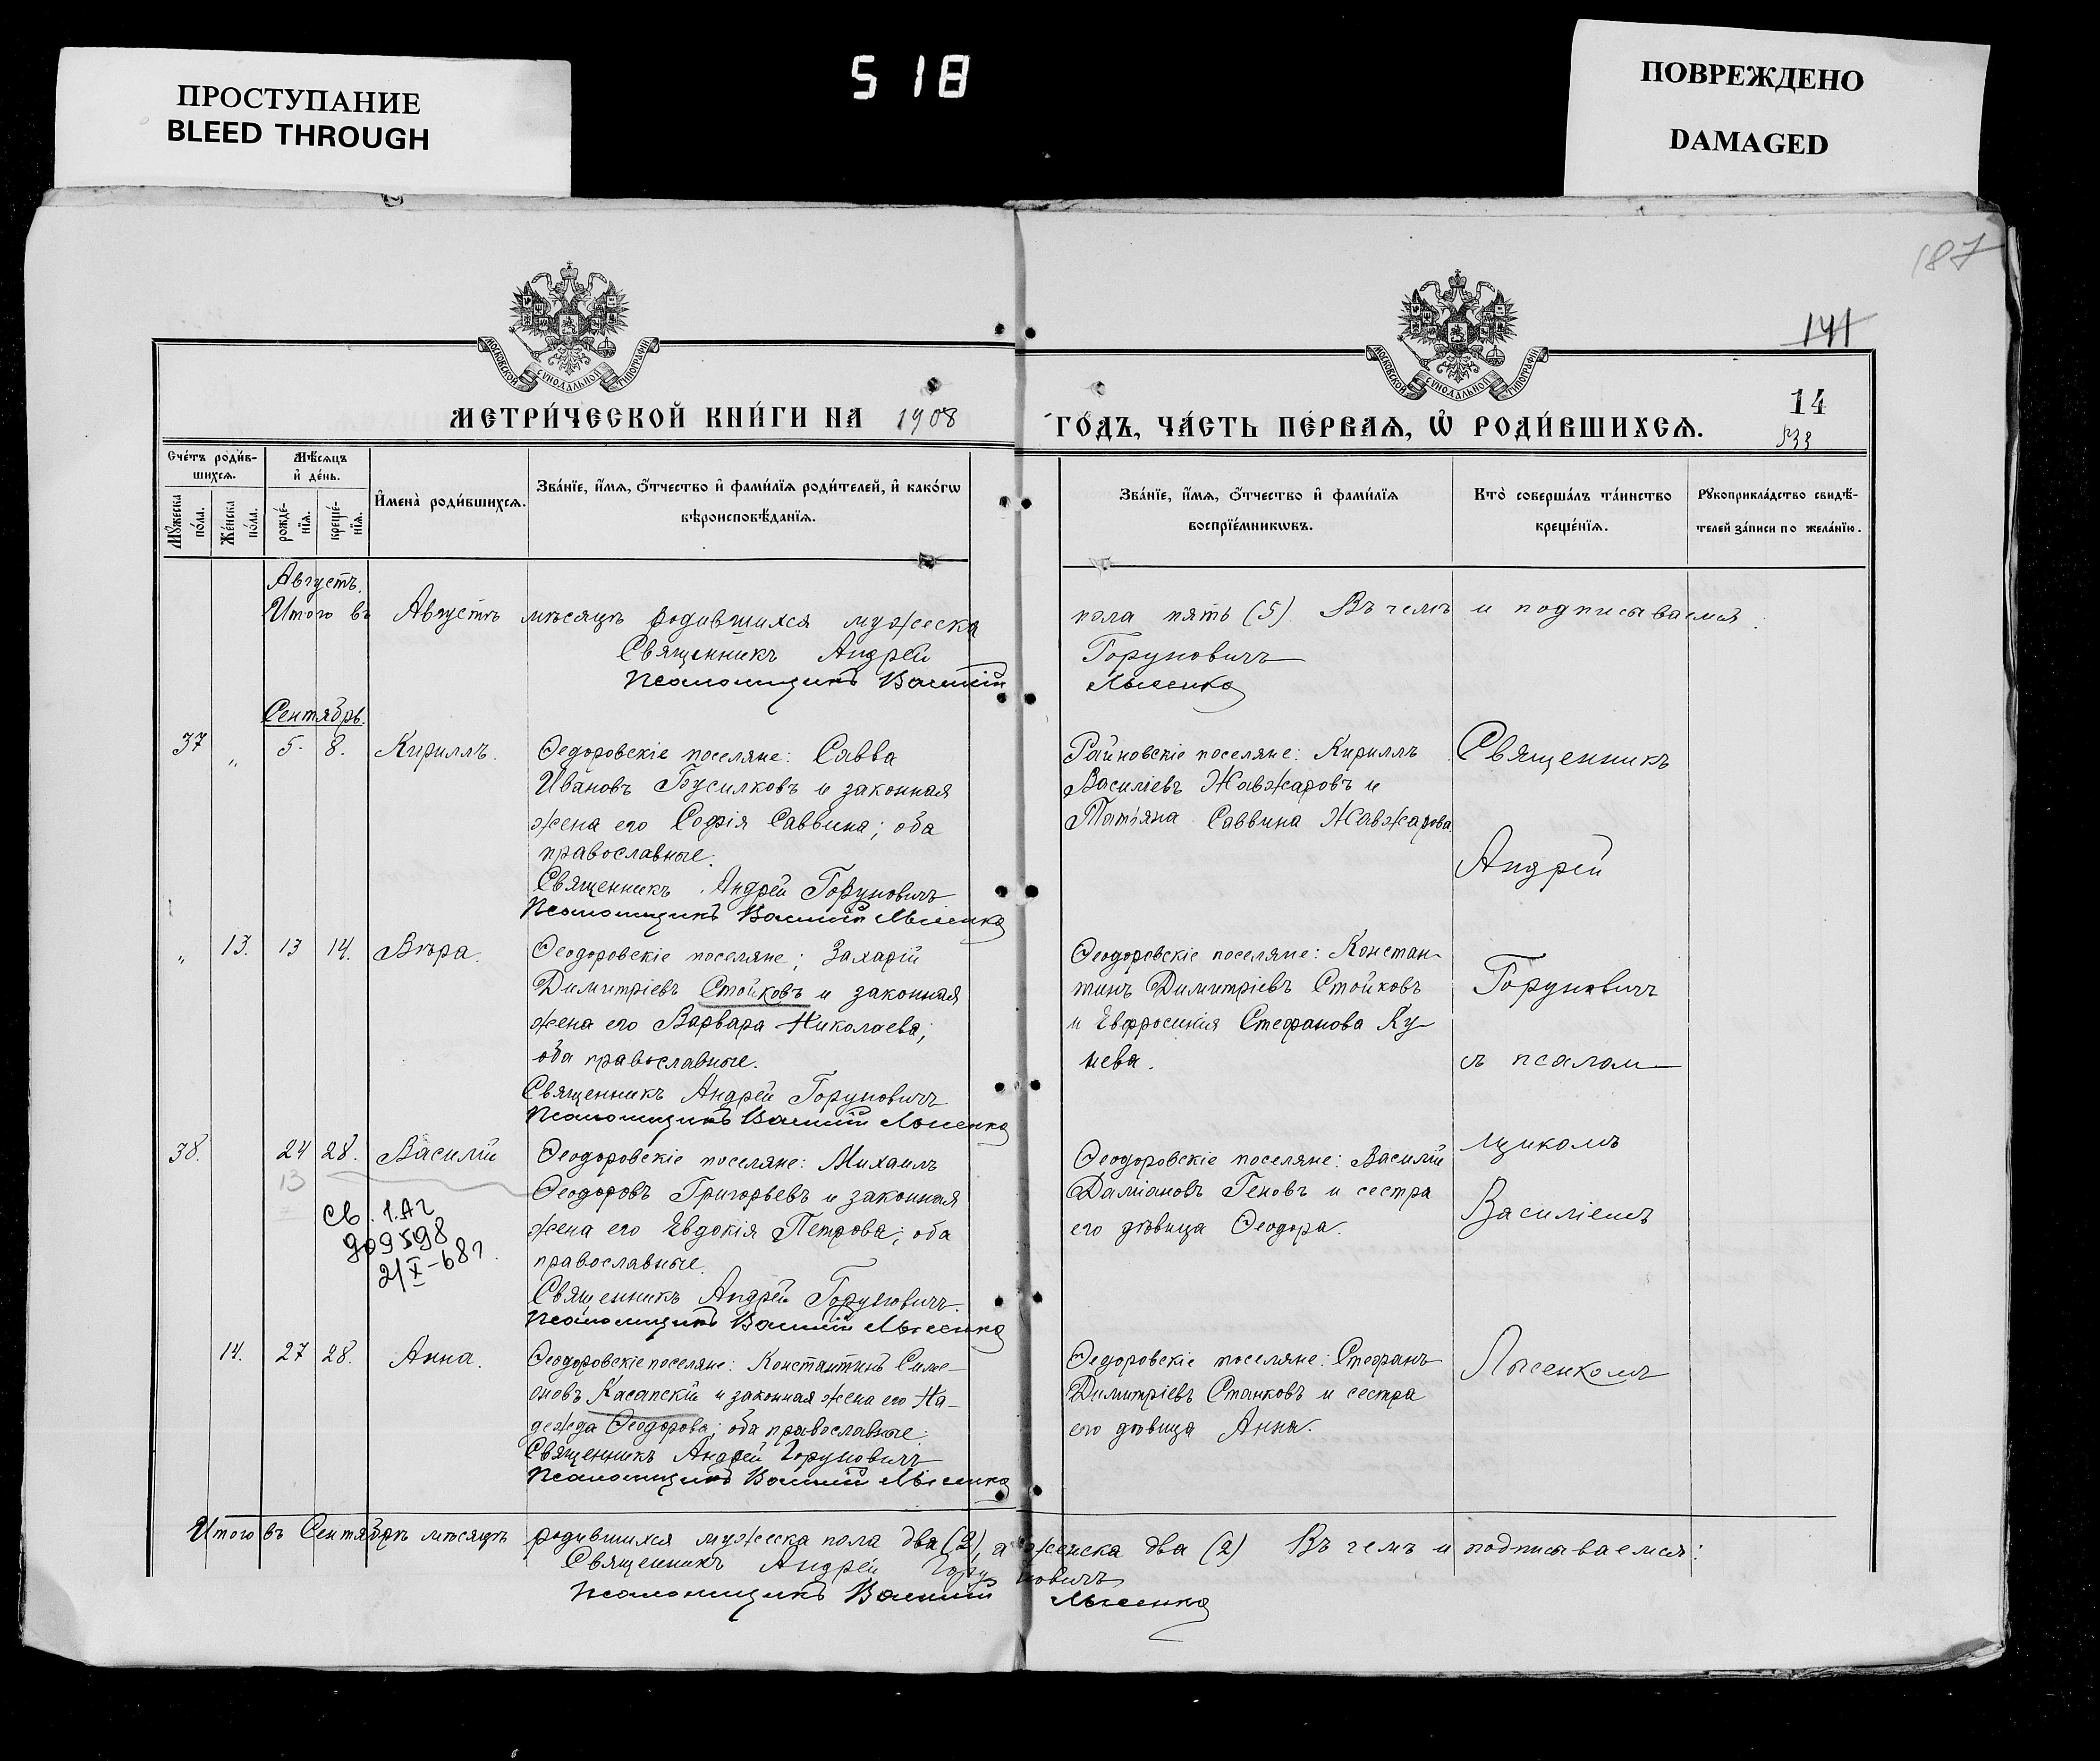 ПРОСТУПАНИЕ
BLEED THROUGH
518
ПОВРЕЖДЕНО
DAMAGED
187
141
МОСКОВСКОЙ СУНОДАЛЬНОЙ ТИПОГРАФІИ
МОСКОВСКОЙ СУНОДАЛЬНОЙ ТИПОГРАФІИ
МЕТРИ́ЧЕСКОЙ КНИ́ГИ НА 1908
ГО́ДЪ, ЧА́СТЬ ПЕ́РВАѦ, Ѡ҆ РОДИ́ВШИХСѦ.
14
Сче́тъ роди́в-
шихсѧ.
Мꙋ́жеска
по́ла.
Же́нска
по́ла.
Мѣ́сѧцъ
и҆ де́нь.
рожде́-
нїѧ.
креще́-
нїѧ.
И҆мена̀ роди́вшихсѧ.
Зва́нїе, и҆́мѧ, ѻ҆́тчество и҆ фами́лїѧ роди́телей, и҆ како́гѡ
вѣроисповѣ́данїѧ.
Зва́нїе, и҆́мѧ, ѻ҆́тчество и҆ фами́лїѧ
воспрїе́мникѡвъ.
Кто̀ соверша́лъ та́инство
креще́нїѧ.
Рꙋкоприкла́дство свидѣ́-
телей за́писи по жела́нїю.
Августъ.
Итого въ Августѣ мѣсяцѣ родившихся мужеска
пола пять (5). Въ чемъ и подписываемся:
Священникъ Андрей
Горуновичъ
Псаломщикъ Василій
Лысенко
Сентябрь.
37 „ 5. 8. Кириллъ.
Ѳедоровскіе поселяне: Савва
Ивановъ Бусилковъ и законная
жена его Софія Саввина; оба
православные.
Священникъ Андрей Горуновичъ
Псаломщикъ Василій Лысенко
Райновскіе поселяне: Кириллъ
Василіевъ Жавжаровъ и
Татіяна Саввина Жавжарова
Священникъ
Андрей
„ 13. 13 14. Вѣра.
Ѳеодоровскіе поселяне; Захарій
Димитріевъ Стойковъ и законная
жена его Варвара Николаева;
оба православные.
Священникъ Андрей Горуновичъ
Псаломщикъ Василій Лысенко
Ѳеодоровскіе поселяне: Констан-
тинъ Димитріевъ Стойковъ
и Евфросинія Стефанова Ку-
нева.
Горуновичъ
съ псалом-
38. 24 28. Василій
13
св. 1.АГ
21/X-68г.
Ѳеодоровскіе поселяне: Михаилъ
Ѳеодоровъ Григорьевъ и законная
жена его Евдокія Петрова; оба
православные.
Священникъ Андрей Горуновичъ.
Псаломщикъ Василій Лысенко
Ѳеодоровскіе поселяне: Василій
Даміановъ Геновъ и сестра
его дѣвица Ѳеодора.
щикомъ
Василіемъ
14. 27 28. Анна.
Ѳеодоровскіе поселяне: Константинъ Симе-
оновъ Касапскій и законная жена его На-
дежда Ѳеодорова; оба православные.
Священникъ Андрей Горуновичъ
Псаломщикъ Василій Лысенко
Ѳедоровскіе поселяне: Стефанъ
Димитріевъ Станковъ и сестра
его дѣвица Анна.
Лысенкомъ
Итого въ Сентябрѣ мѣсяцѣ родившихся мужеска пола два (2), а женска два (2) Въ чемъ и подписываемся:
Священникъ Андрей Горуновичъ
Псаломщикъ Василій Лысенко